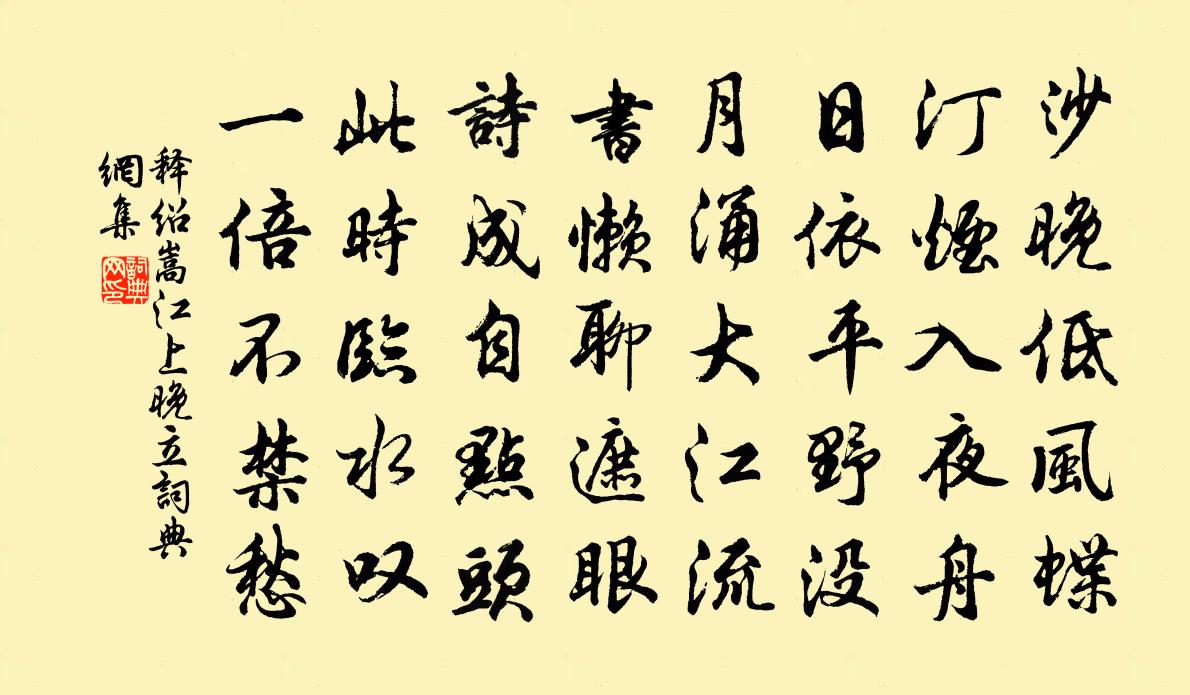 沙晚低風蝶
汀煙入夜舟
日依平野没
月涌大江流
書懒聊遮眼
詩成自點頭
此時臨水叹
一倍不禁愁
释绍嵩江上晚立詞典
網集
詞典
网印